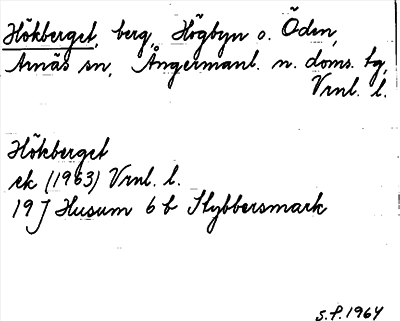 Hökberget, berg, Högbyn o. Öden,
Arnäs sn, Ångermanl. n. doms. tg,
Vrnl. l.
Hökberget
ek (1963) Vrnl. l.
19 J Husum 6 b Flybbersmark
S.P. 1964